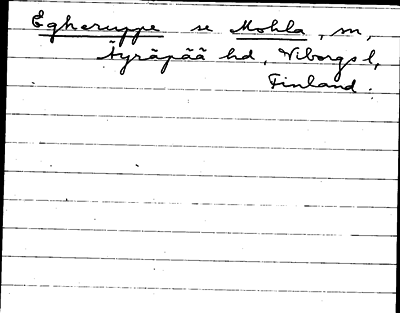 Egheruppe se Mohla, m,
Äyräpää hd, Viborgs l,
Finland.